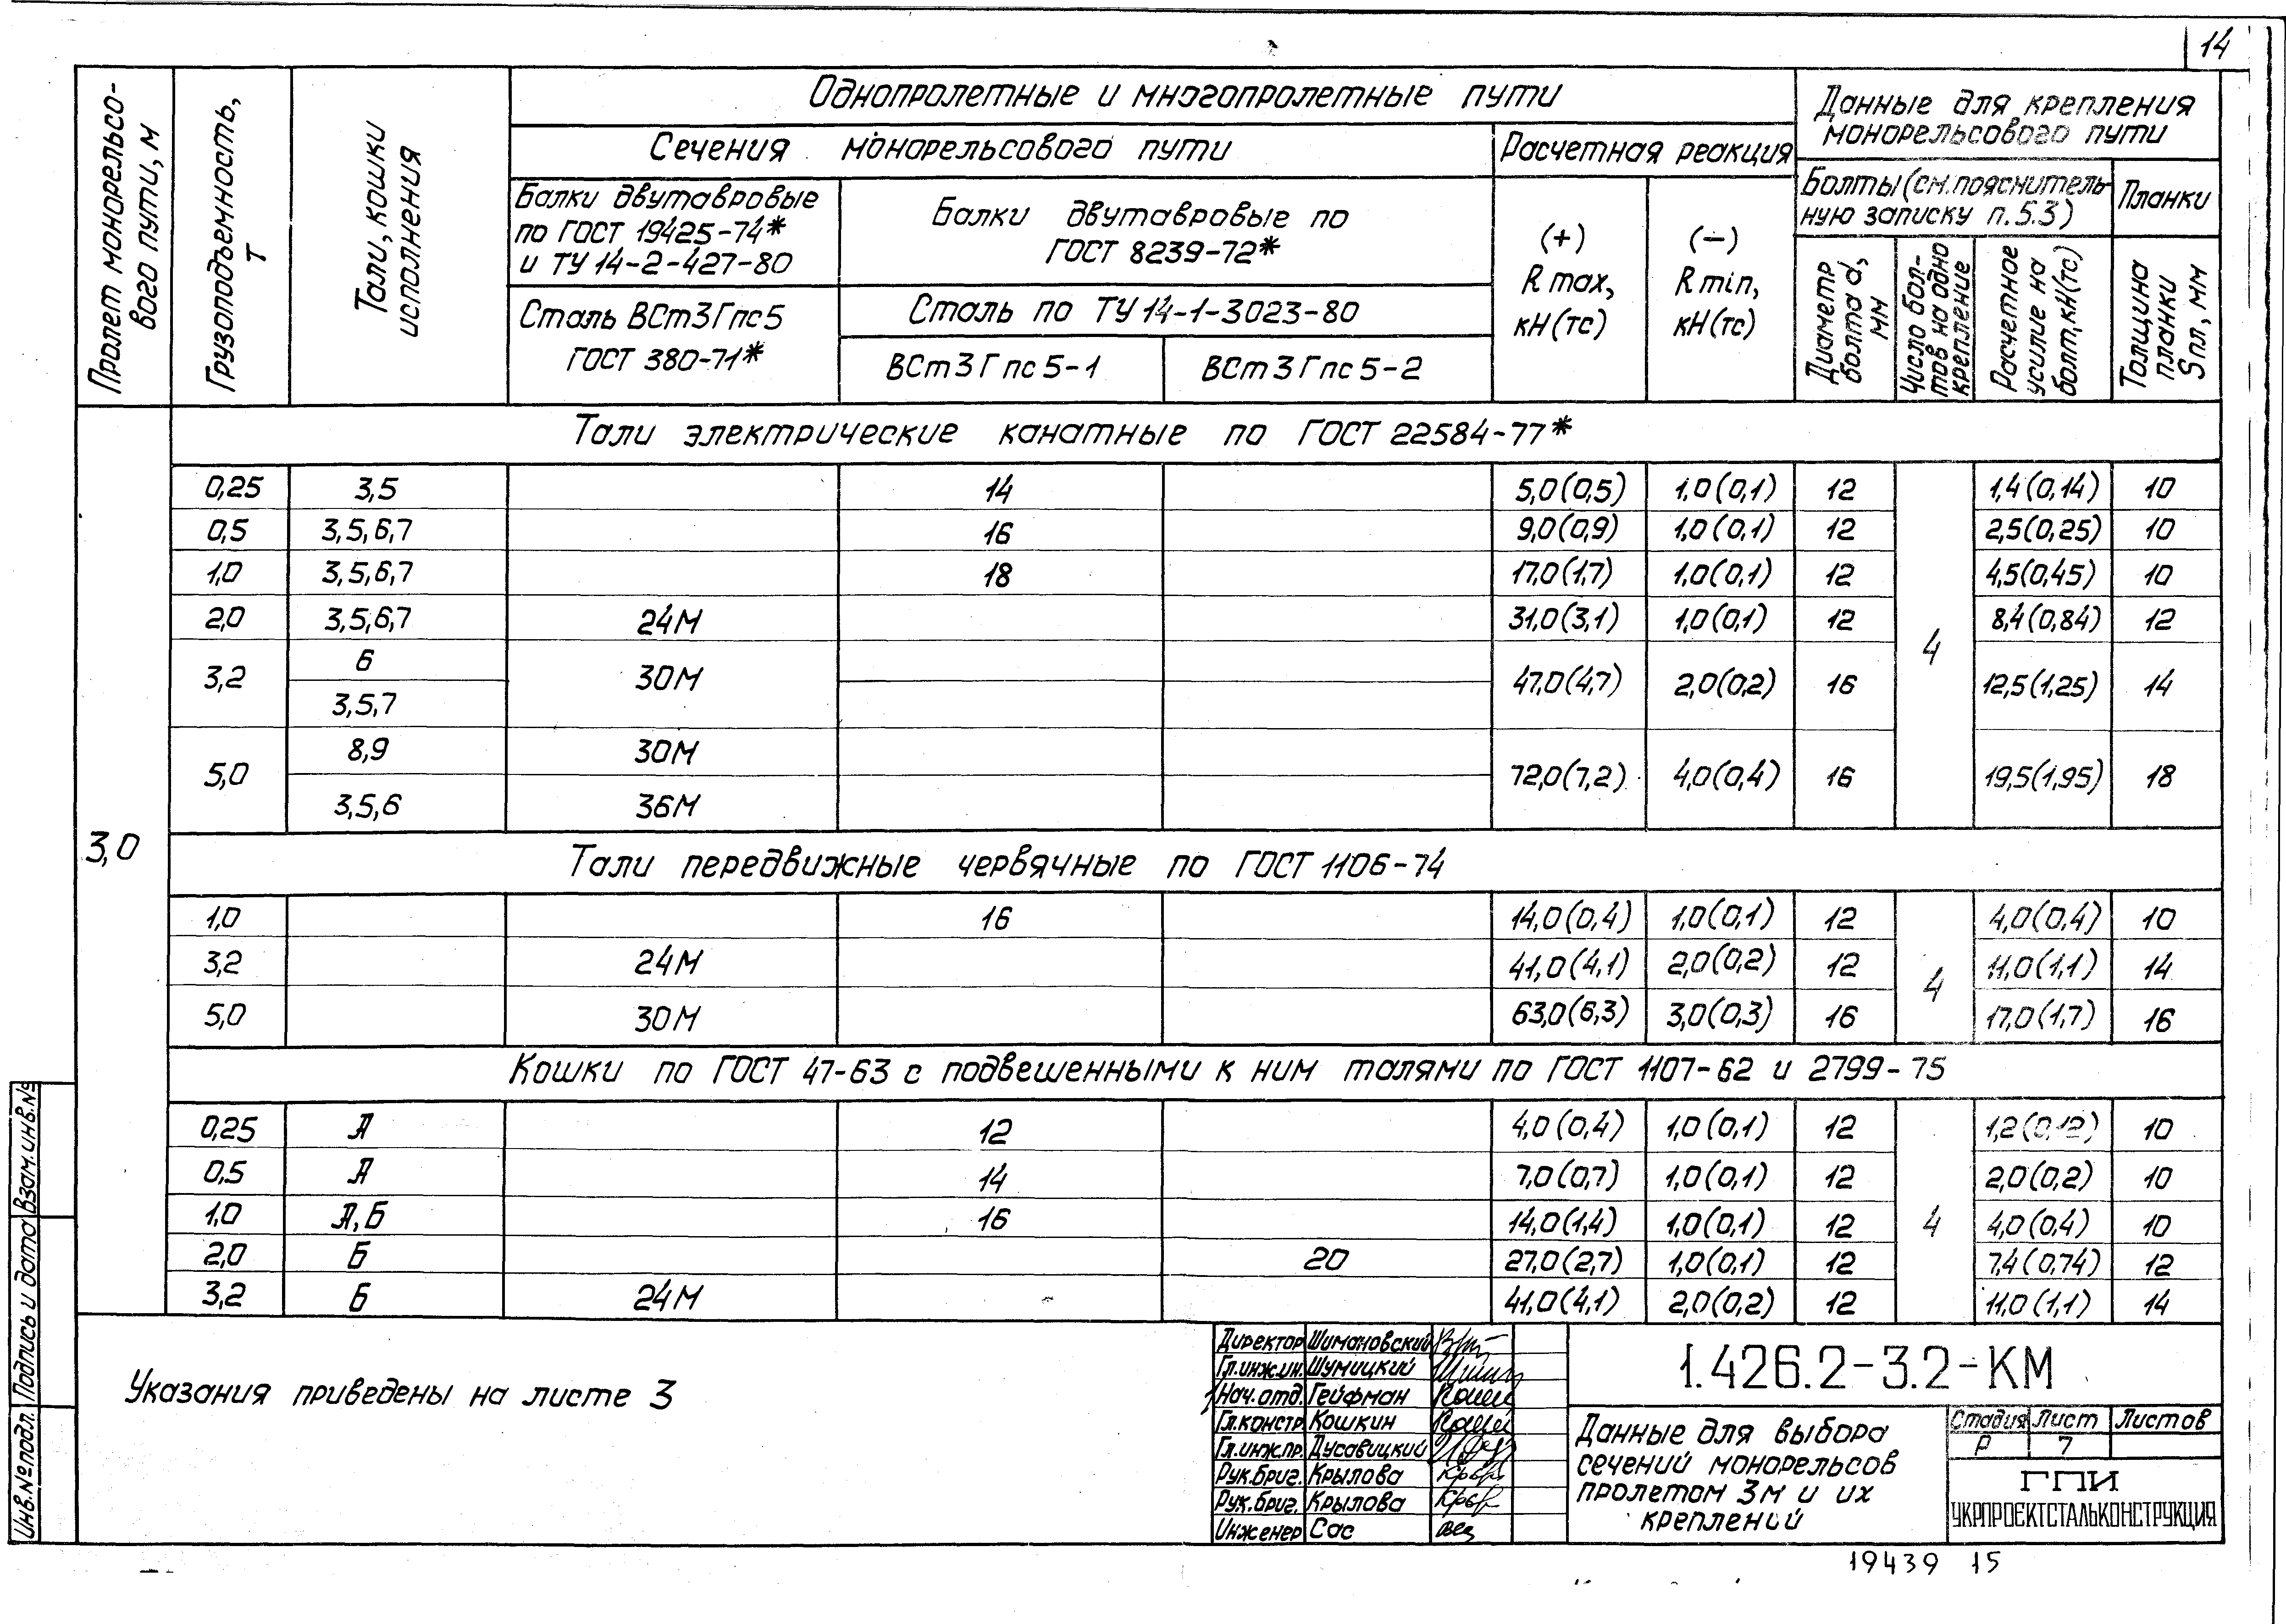 14
Пролет монорельсо-
вого пути, м
Грузоподъемность,
т
Тали, кошки
исполнения
Однопролетные и многопролетные пути
Сечения монорельсового пути
Балки двутавровые
по ГОСТ 19425-74*
и ТУ 14-2-427-80
Сталь ВСт3Гпс5
ГОСТ 380-71*
Балки двутавровые по
ГОСТ 8239-72*
Сталь по ТУ 14-1-3023-80
ВСт3Гпс5-1 ВСт3Гпс5-2
Расчетная реакция
(+)
R max,
кН(тс)
(−)
R min,
кН(тс)
Данные для крепления
монорельсового пути
Болты (см. пояснитель-
ную записку п.5.3)
Планки
Диаметр
болта d,
мм
Число бол-
тов на одно
крепление
Расчетное
усилие на
болт, кН(тс)
Толщина
планки
Sпл, мм
3,0
Тали электрические канатные по ГОСТ 22584-77*
0,25 3,5 14 5,0(0,5) 1,0(0,1) 12 1,4(0,14) 10
0,5 3,5,6,7 16 9,0(0,9) 1,0(0,1) 12 2,5(0,25) 10
1,0 3,5,6,7 18 17,0(1,7) 1,0(0,1) 12 4,5(0,45) 10
2,0 3,5,6,7 24М 31,0(3,1) 1,0(0,1) 12 8,4(0,84) 12
4
3,2 6 30М 47,0(4,7) 2,0(0,2) 16 12,5(1,25) 14
3,5,7
5,0 8,9 30М 72,0(7,2) 4,0(0,4) 16 19,5(1,95) 18
3,5,6 36М
Тали передвижные червячные по ГОСТ 1106-74
1,0 16 14,0(0,4) 1,0(0,1) 12 4,0(0,4) 10
3,2 24М 41,0(4,1) 2,0(0,2) 12 4 11,0(1,1) 14
5,0 30М 63,0(6,3) 3,0(0,3) 16 17,0(1,7) 16
Кошки по ГОСТ 47-63 с подвешенными к ним талями по ГОСТ 1107-62 и 2799-75
0,25 А 12 4,0(0,4) 1,0(0,1) 12 1,2(0,12) 10
0,5 А 14 7,0(0,7) 1,0(0,1) 12 2,0(0,2) 10
1,0 А, Б 16 14,0(1,4) 1,0(0,1) 12 4 4,0(0,4) 10
2,0 Б 20 27,0(2,7) 1,0(0,1) 12 7,4(0,74) 12
3,2 Б 24М 41,0(4,1) 2,0(0,2) 12 11,0(1,1) 14
Указания приведены на листе 3
Инв.№подл. Подпись и дата Взам.инв.№
Директор Шимановский
Гл.инж.ин. Шумицкий
Нач.отд. Гейфман
Гл.констр. Кошкин
Гл.инж.пр. Дусавицкий
Рук.бриг. Крылова
Рук.бриг. Крылова
Инженер Сас
1.426.2-3.2-КМ
Данные для выбора
сечений монорельсов
пролетом 3м и их
креплений
Стадия Лист Листов
Р 7
ГПИ
УКРПРОЕКТСТАЛЬКОНСТРУКЦИЯ
19439 15